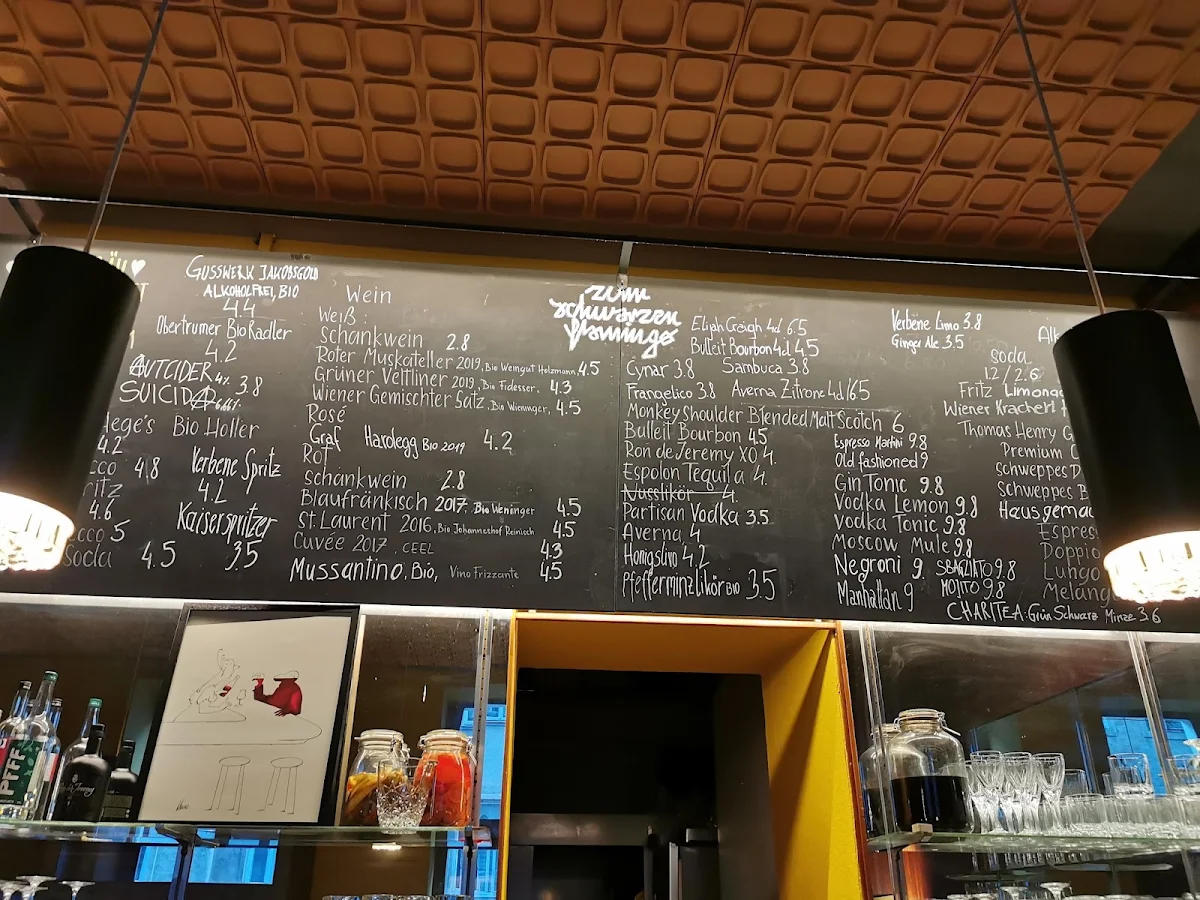 GUSSWERK JAKOBSGOLD
ALKOHOLFREI, BIO
4.4
Obertrumer Bio Radler
4.2
AUTCIDER 4% 3.8
SUICIDA
Bio Holler
4.2
4,8
Verbene Spritz
4.2
4.6
Kaiserspritzer
3,5
5
soda 4.5
Wein
Weiß:
Schankwein 2.8
Roter Muskateller 2019, Bio Weingut Holzmann 4.5
Grüner Veltliner 2019, Bio Fidesser. 4.3
Wiener Gemischter Satz, Bio Wieninger, 4.5
Rosé
Graf Hardegg Bio 2019 4.2
Rot
Schankwein 2.8
Blaufränkisch 2017, Bio Weninger 4.5
St. Laurent 2016, Bio Johanneshof Reinisch 4.5
Cuvée 2017, CEEL 4.3
Mussantino, Bio, Vino Frizzante 4.5
zum
schwarzen
Flamingo
Elijah Creigh 4d 6.5
Bulleit Bourbon 4d 4,5
Cynar 3.8 Sambuca 3.8
Frangelico 3.8 Averna Zitrone 4d 6.5
Monkey Shoulder Blended Malt Scotch 6
Bulleit Bourbon 4.5
Ron de Jeremy XO 4.
Espolon Tequila 4.
Nusslikör 4.
Partisan Vodka 3.5
Averna, 4
Honigslivo 4,2
Pfefferminzlikör BIO 3.5
Espresso Martini 9.8
Old fashioned 9
Gin Tonic 9.8
Vodka Lemon 9.8
Vodka Tonic 9.8
Moscow Mule 9.8
Negroni 9. SBAGLIATO 9.8
Manhattan 9 MOJITO 9.8
CHARITEA: Grün Schwarz Minze 3.6
Verbene Limo 3.8
Ginger Ale 3.5
soda
1.2 / 2.6
Fritz
Wiener Kracherl
Thomas Henry
Premium
Schweppes
Schweppes
Doppio
Lungo
PFFF